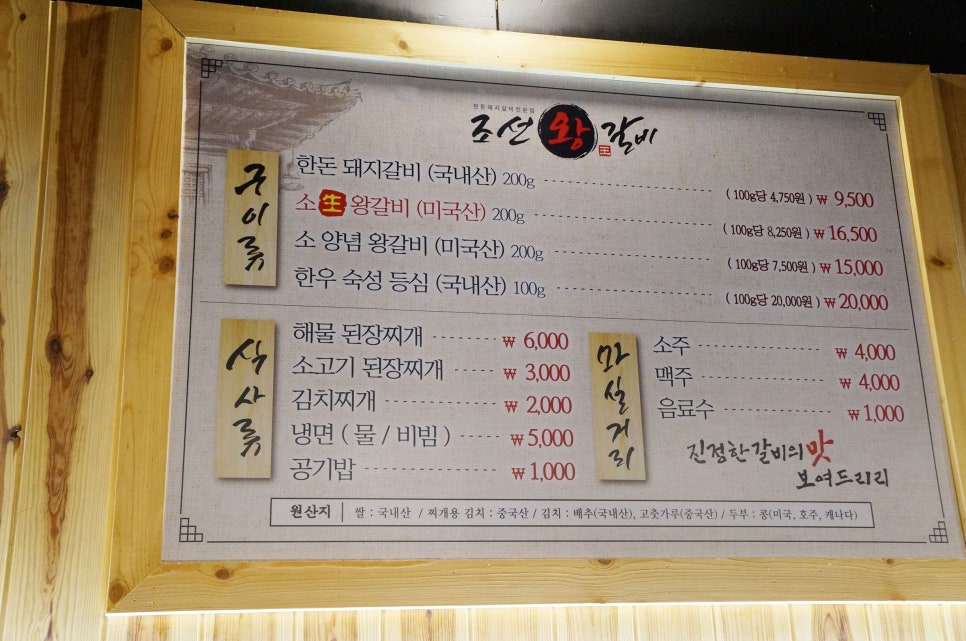 한돈돼지갈비전문점
조선 왕 갈비
구이류
한돈 돼지갈비 (국내산) 200g (100g당 4,750원) ₩ 9,500
소 生 왕갈비 (미국산) 200g (100g당 8,250원) ₩ 16,500
소 양념 왕갈비 (미국산) 200g (100g당 7,500원) ₩ 15,000
한우 숙성 등심 (국내산) 100g (100g당 20,000원) ₩ 20,000
식사류
해물 된장찌개 ₩ 6,000
소고기 된장찌개 ₩ 3,000
김치찌개 ₩ 2,000
냉면 ( 물 / 비빔 ) ₩ 5,000
공기밥 ₩ 1,000
마실거리
소주 ₩ 4,000
맥주 ₩ 4,000
음료수 ₩ 1,000
진정한 갈비의 맛
보여드리리
원산지 | 쌀 : 국내산 / 찌개용 김치 : 중국산 / 김치 : 배추(국내산), 고춧가루(중국산) / 두부 : 콩(미국, 호주, 캐나다)